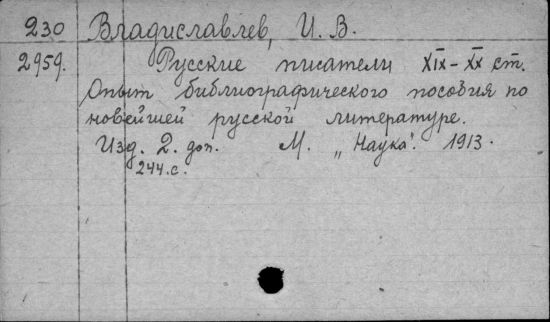 230 Владиславлев, И. В.
2959. Русские писатели XIX-XX ст.
Опыт библиографического пособия по
новейшей русской литературе.
Изд. 2. доп. М. „Наука". 1913.
244.с.